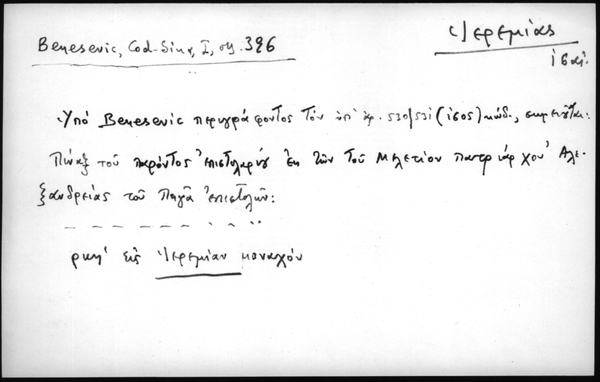 Benesevic, Cod. Sin., I, σ. 396
Ἰερεμίας
ις αἰ.
Ὑπὸ Benesevic περιγράφοντος τὸν ὑπ' ἀρ. 530/531 (ισος) κώδ., σημειοῦται:
Πίναξ τοῦ παρόντος ἐπιστολαρίου ἐκ τῶν τοῦ Μελετίου πατριάρχου Ἀλε-
ξανδρείας τοῦ Πηγᾶ ἐπιστολῶν:
ρκη' εἰς Ἰερεμίαν μοναχόν